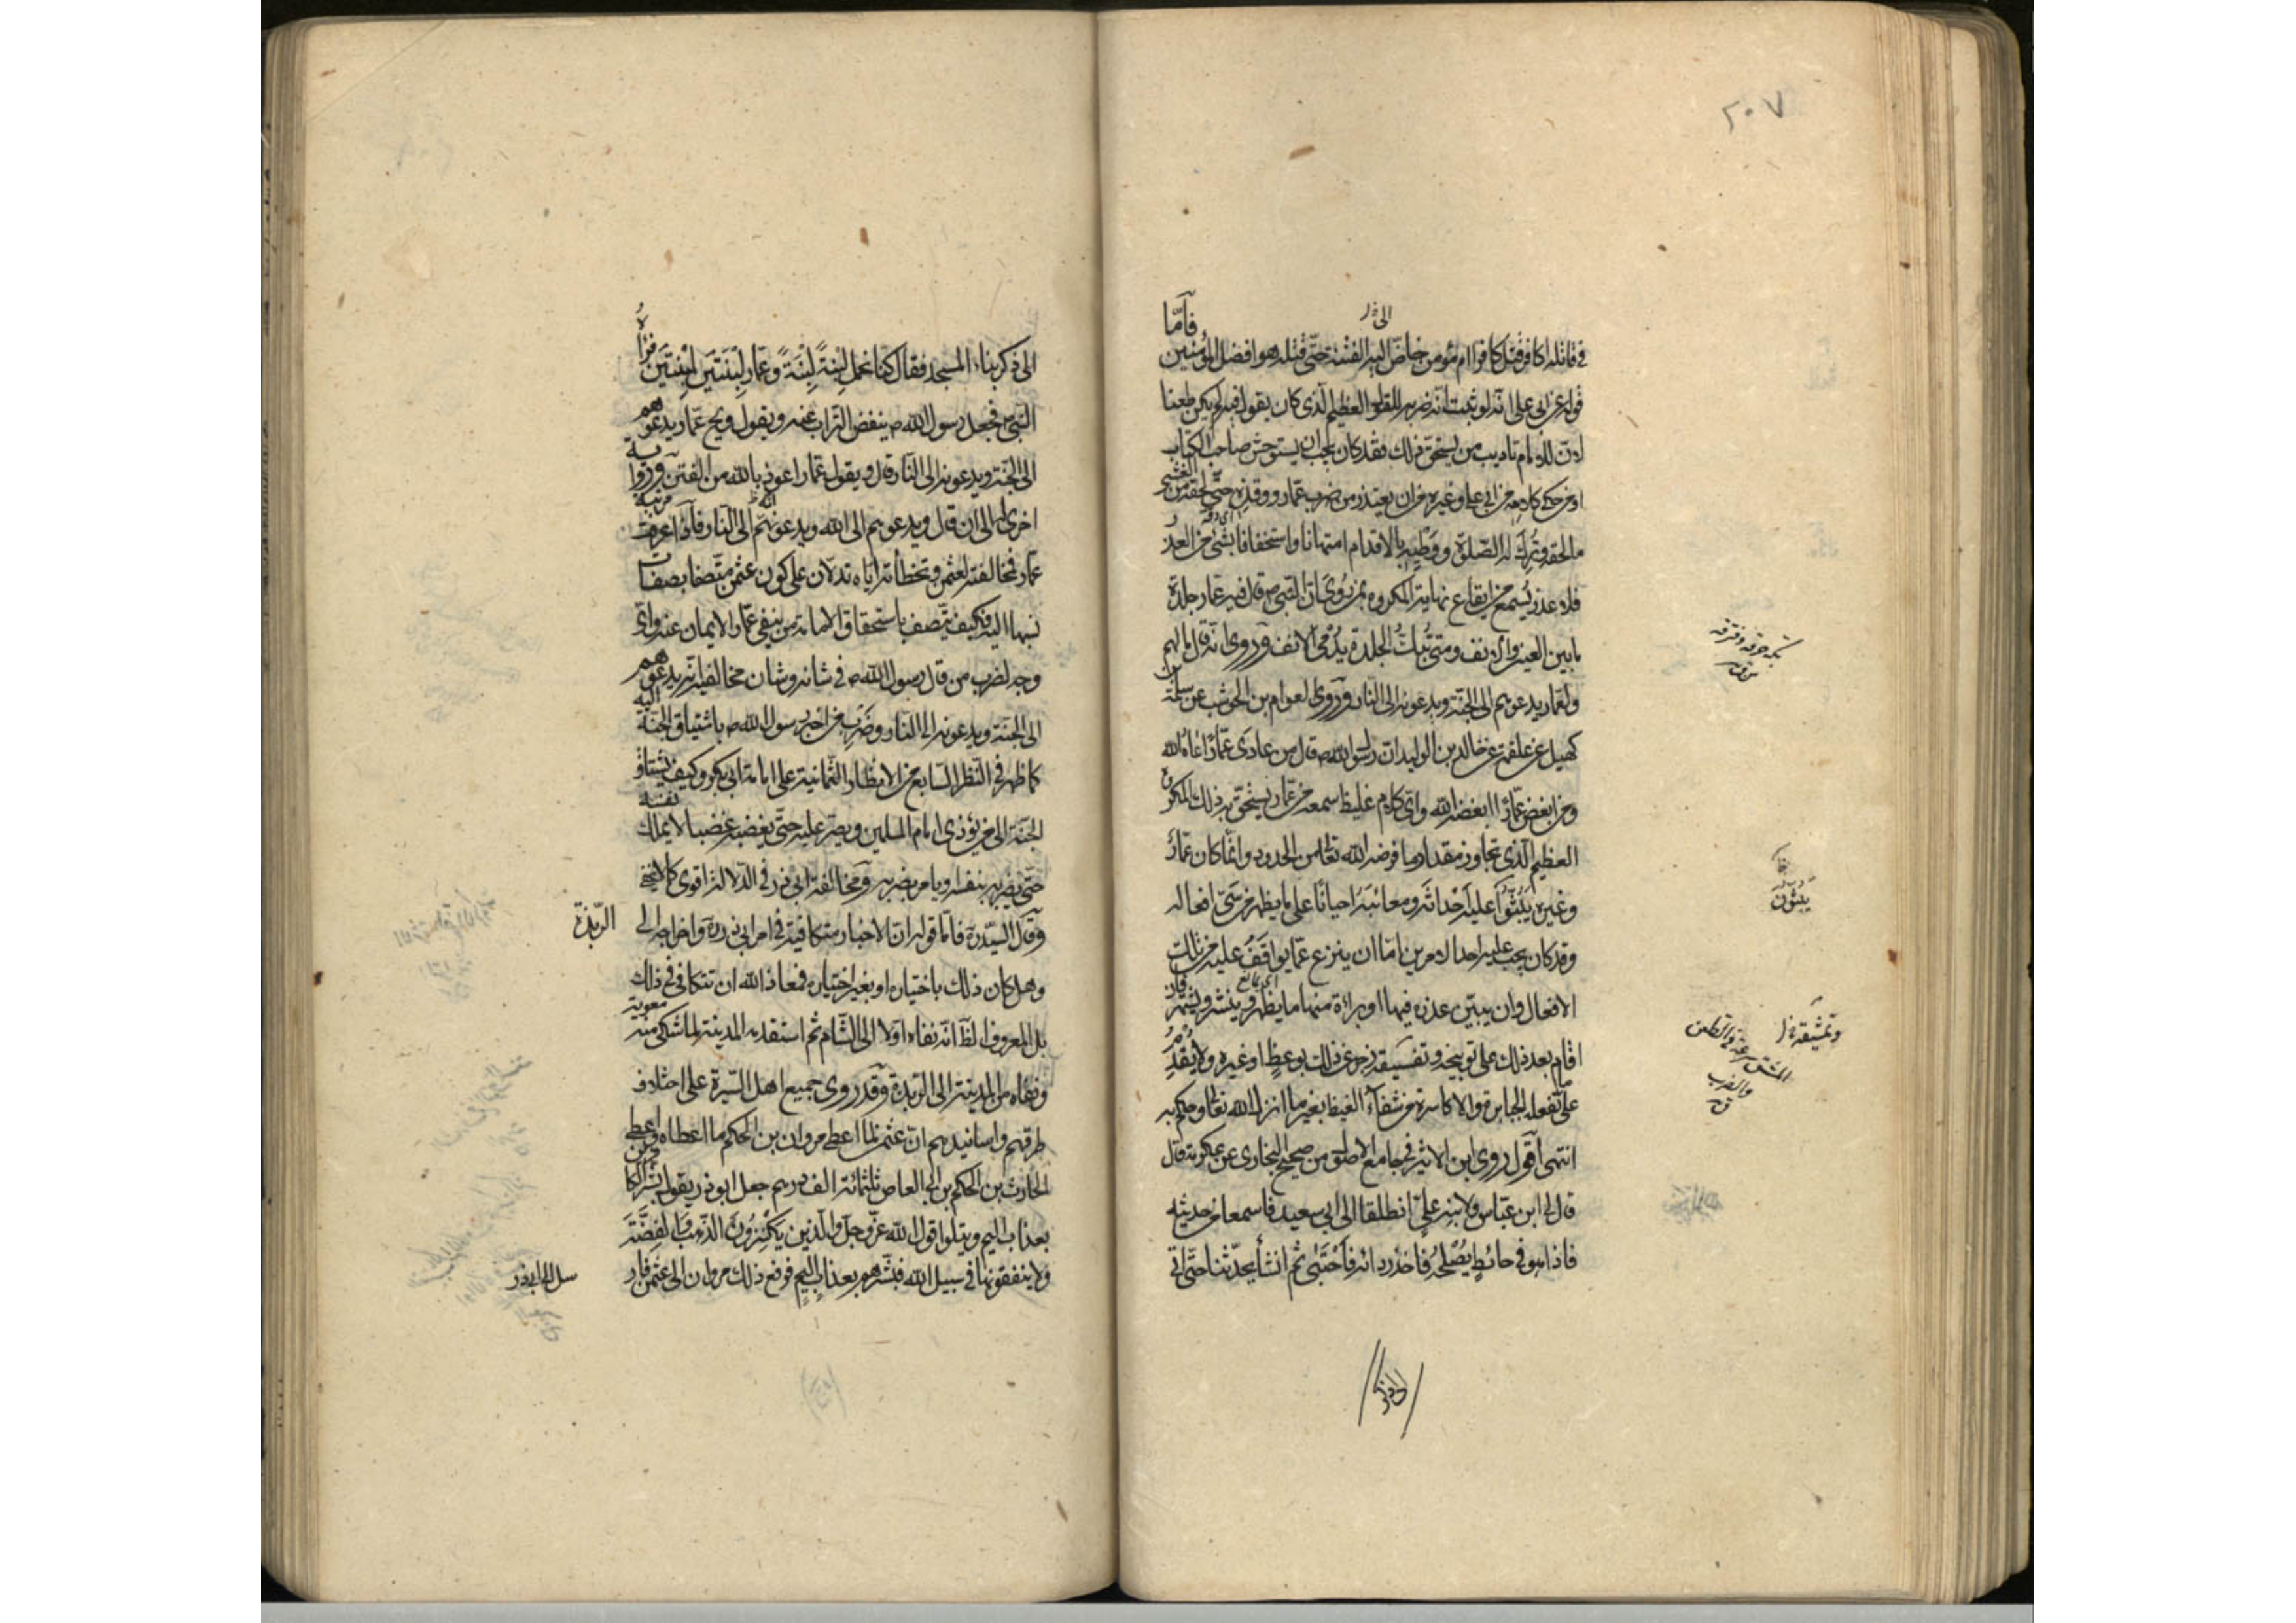 ٢٠٧
فى قاتله اكافر قتل كافرا ام مؤمن خاض اليه الفتنة حتى قتله وهو افضل المؤمنين فامّا
قوله عن ابى على انه لو ثبت انه ضربه للقول العظيم الذى كان يقول فيه لم يكن طعنا
لانّ للامام تاديب من يستحق ذلك فقد كان يجب ان يستوحش صاحب الكتاب
او من حكى كلامه من ابى على وغيره من ان يعتذر من ضرب عمار ووقذه حتى لحقه من الغشى
ما لحقه وتُرِكَ له الصّلوة ووَطْيِهِ بالاقدام امتهانا واستخفافا بشئ من العذر
فلا عذر يُسمع من ايقاع نهاية المكروه بمن رُوِىَ انّ النبى ص قال فيه عمار جلدة
ما بين العين والانف ومتى تُنكَ الجلدة يُدْمى الانف وروى انه قال ما لهم
ولعمار يدعوهم الى الجنّة ويدعونه الى النار وروى العوام بن الحوشب عن سلمة بن
كهيل عن علقمة عن خالد بن الوليد انّ رسول الله ص قال من عادى عمّارًا عاداه الله
ومن ابغض عمّارًا ابغضه الله واىّ كلام غليظ سمعه من عمّار يستحقّ به ذلك المكروه
العظيم الّذى تجاوز مقدار ما فرضه الله تعالى من الحدود وانّما كان عمّارٌ
وغيره يَبُثّوا عليه اَحْداثَه ومعائبَهُ احيانًا على ما يظهر من سَىّئ افعاله
وقد كان يجب عليه احد الامرين امّا ان ينزع عمّا يواقَفُ عليه من تلك
الافعال وان يبيّن عذره فيها او براءة منها ما يظهر وينشر ويشتهر فان
اقام بعد ذلك على توبيخه وتفسيقه زجر عن ذلك بوعظٍ او غيره ولا يُقْدِمُ
على ما تفعله الجبابرة والاكاسرة من شفآء الغيظ بغير ما انزل الله تعالى وحكم به
انتهى اَقُول روى ابن الاثير فى جامع الاصول من صحيح البخارى عن عكرمة قال
قال لى ابن عبّاس ولابنه علىّ انطلقا الى ابى سعيد فاسمعا من حديثه
فاذا هو فى حائطٍ يُصْلِحُه فاخذ ردائه فاَحْتَبٰى ثم انشأ يحدّثنا حتّى اتى
يبثّون
وتمشيقه
المشق سرعة فى الطعن
والضرب
ق
الى ذكر بناء المسجد فقال كنّا نحمل لِبْنةً لِبْنَةً وعمّار لِبْنَتَين لبنتين فراٰهُ
النبى ص فجعل رسول الله ص ينفض التّراب عنه ويقول ويح عمّار يدعوهم
الى الجنّة ويدعونه الى النّار قال ويقول عمّار اعوذ بالله من الفتن وروا
اخرى له الى ان قال ويدعوهم الى الله ويدعونه الى النار فاذا عرفت مرتبة
عمّار فمخالفته لعثمن وتخطأته ايّاه تدلّان على كون عثمن متّصفا بصفات
نسبها اليه فكيف يتّصف باستحقاق الامامة من ينفى عمّار الايمان عنه واىّ
وجه لضرب من قال رسول الله ص فى شانه وشان مخالفيه انّه يدعوهم
الى الجنّة ويدعونه الى النّار وضَرْبِ من اخبر رسول الله ص باشتياق الجنّة اليه
كما ظهر فى النّظر السّابع من الانظار الثّمانية على امامة ابى بكر وكيف يشتاق
الجنّة الى من يؤذى امام المسلمين ويصرّ عليه حتّى يغضبه غضبا لا يملك نفسه
حتّى يضربه بنفسه ويامر بضربه ومخالفة ابى ذر فى الدّلالة اقوى كما لا يخفى
وقال السيّد ره فامّا قوله انّ الاخبار متكافية فى امر ابى ذر ره واخراجه الى الرّبذة
وهل كان ذلك باختياره او بغير اختياره فمعاذ الله ان تتكافى فى ذلك
بل المعروف الظّ انّه نفاه اوّلا الى الشّام ثم استقدمه المدينة لما شكى منه معوية
ونفاه من المدينة الى الرّبذة وقد روى جميع اهل السّيرة على اختلاف
طرقهم واسانيدهم انّ عثمن لمّا اعطى مروان بن الحكم ما اعطاه واعطى
الحارث بن الحكم بن ابى العاص ثلثمائة الف درهم جعل ابو ذر يقول بشّر الكافرين
بعذاب اليم ويتلوا قول الله عزّ وجلّ والّذين يَكْنِزُونَ الذّهبَ وَالفِضَّةَ
ولا ينفقونها فى سبيل الله فبشّرهم بعذابٍ اليمٍ فرفع ذلك مروان الى عثمن فارسل الى ابى ذر